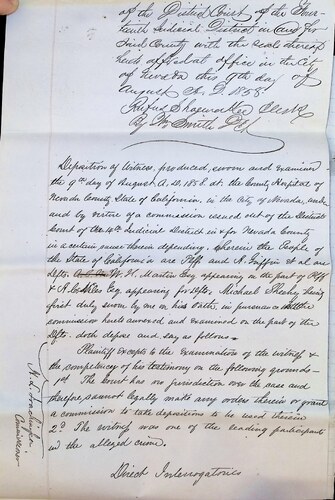 of the District Court of the Four-
teenth Judicial District in and for
said County with the seal thereof
hereto affixed at office in the City
of Nevada this 9th day of
August A. D. 1858.
Rufus Shoemaker Clerk
By Smith Dpt
Deposition of Witness, produced, sworn and examined
the 9th day of August A. D. 1858. at the County Hospital of
Nevada County State of California, in the City of Nevada, under
and by virtue of a commission issued out of the District
Court of the 14th Judicial District in & for Nevada County
in a certain cause therein depending. Wherein the People of
the State of California are Plff and A. Griffin et al are
Defts. W. H. Martin Esq appearing on the part of Plff
& Esq. appearing for Defts. Michael being
first duly sworn by me on his oath, in pursuance of the
commission hereto annexed and examined on the part of the
Defts. doth depose and say as follows =
Plaintiff excepts to the examination of the witness &
the competency of his testimony on the following grounds-
1st The Court has no jurisdiction over the case and
therefore cannot legally make any orders therein or grant
a commission to take depositions to be used therein
2d The witness was one of the leading participants
in the alleged crime.
Direct Interrogatories
Commissioner